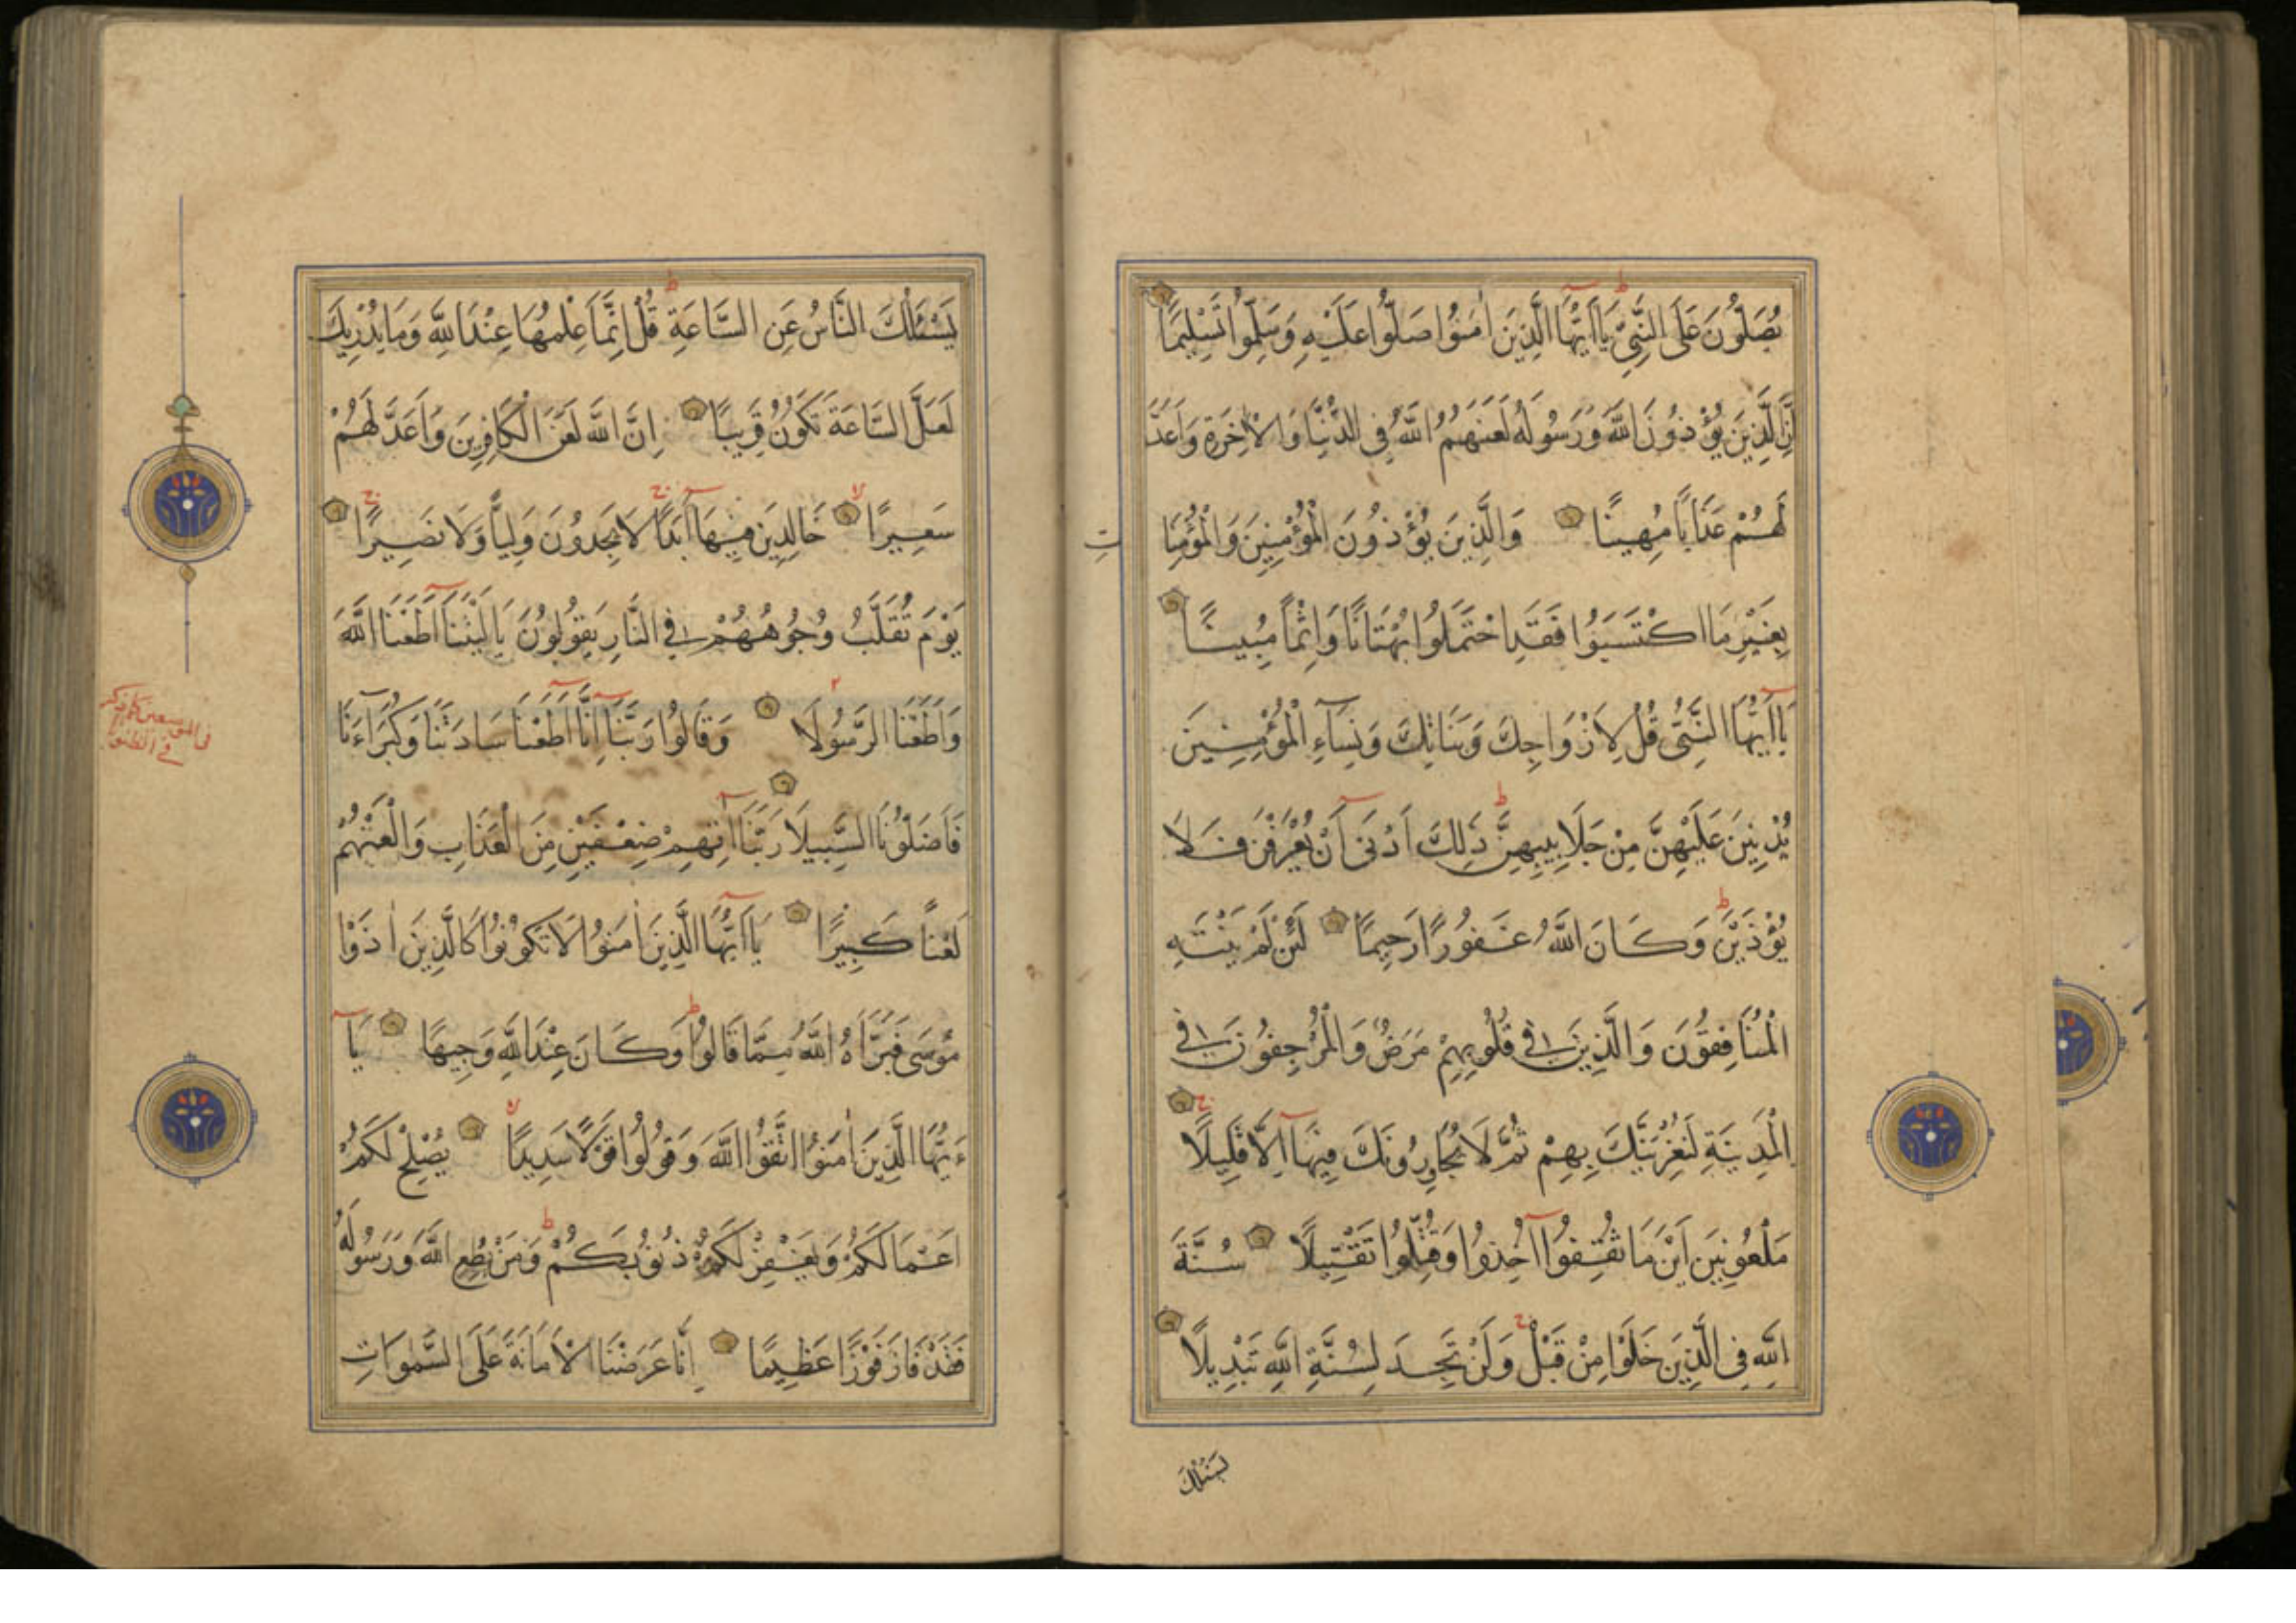 يُصَلُّونَ عَلَى النَّبِيِّ يَا اَيُّهَا الَّذِينَ اٰمَنُوا صَلُّوا عَلَيْهِ وَسَلِّمُوا تَسْلِيمًا
اِنَّ الَّذِينَ يُؤْذُونَ اللّٰهَ وَرَسُولَهُ لَعَنَهُمُ اللّٰهُ فِي الدُّنْيَا وَالْاٰخِرَةِ وَاَعَدَّ
لَهُمْ عَذَابًا مُهِينًا وَالَّذِينَ يُؤْذُونَ الْمُؤْمِنِينَ وَالْمُؤْمِنَا
ت
بِغَيْرِ مَا اكْتَسَبُوا فَقَدِ احْتَمَلُوا بُهْتَانًا وَاِثْمًا مُبِينًا
يَا اَيُّهَا النَّبِيُّ قُلْ لِاَزْوَاجِكَ وَبَنَاتِكَ وَنِسَآءِ الْمُؤْمِنِينَ
يُدْنِينَ عَلَيْهِنَّ مِنْ جَلَابِيبِهِنَّ ذٰلِكَ اَدْنٰى اَنْ يُعْرَفْنَ فَلَا
يُؤْذَيْنَ وَكَانَ اللّٰهُ غَفُورًا رَحِيمًا لَئِنْ لَمْ يَنْتَهِ
الْمُنَافِقُونَ وَالَّذِينَ فِي قُلُوبِهِمْ مَرَضٌ وَالْمُرْجِفُونَ فِي
الْمَدِينَةِ لَنُغْرِيَنَّكَ بِهِمْ ثُمَّ لَا يُجَاوِرُونَكَ فِيهَا اِلَّا قَلِيلًا
مَلْعُونِينَ اَيْنَ مَا ثُقِفُوا اُخِذُوا وَقُتِّلُوا تَقْتِيلًا سُنَّةَ
اللّٰهِ فِي الَّذِينَ خَلَوْا مِنْ قَبْلُ وَلَنْ تَجِدَ لِسُنَّةِ اللّٰهِ تَبْدِيلًا
يَسْئَلُكَ
يَسْئَلُكَ النَّاسُ عَنِ السَّاعَةِ قُلْ اِنَّمَا عِلْمُهَا عِنْدَ اللّٰهِ وَمَا يُدْرِيكَ
لَعَلَّ السَّاعَةَ تَكُونُ قَرِيبًا اِنَّ اللّٰهَ لَعَنَ الْكَافِرِينَ وَاَعَدَّ لَهُمْ
سَعِيرًا خَالِدِينَ فِيهَا اَبَدًا لَا يَجِدُونَ وَلِيًّا وَلَا نَصِيرًا
يَوْمَ تُقَلَّبُ وُجُوهُهُمْ فِي النَّارِ يَقُولُونَ يَا لَيْتَنَا اَطَعْنَا اللّٰهَ
وَاَطَعْنَا الرَّسُولَا وَقَالُوا رَبَّنَا اِنَّا اَطَعْنَا سَادَتَنَا وَكُبَرَآءَنَا
فَاَضَلُّونَا السَّبِيلَا رَبَّنَا اٰتِهِمْ ضِعْفَيْنِ مِنَ الْعَذَابِ وَالْعَنْهُمْ
لَعْنًا كَبِيرًا يَا اَيُّهَا الَّذِينَ اٰمَنُوا لَا تَكُونُوا كَالَّذِينَ اٰذَوْا
مُوسٰى فَبَرَّاَهُ اللّٰهُ مِمَّا قَالُوا وَكَانَ عِنْدَ اللّٰهِ وَجِيهًا يَا
ءَيُّهَا الَّذِينَ اٰمَنُوا اتَّقُوا اللّٰهَ وَقُولُوا قَوْلًا سَدِيدًا يُصْلِحْ لَكُمْ
اَعْمَالَكُمْ وَيَغْفِرْ لَكُمْ ذُنُوبَكُمْ وَمَنْ يُطِعِ اللّٰهَ وَرَسُولَهُ
فَقَدْ فَازَ فَوْزًا عَظِيمًا اِنَّا عَرَضْنَا الْاَمَانَةَ عَلَى السَّمٰوَاتِ